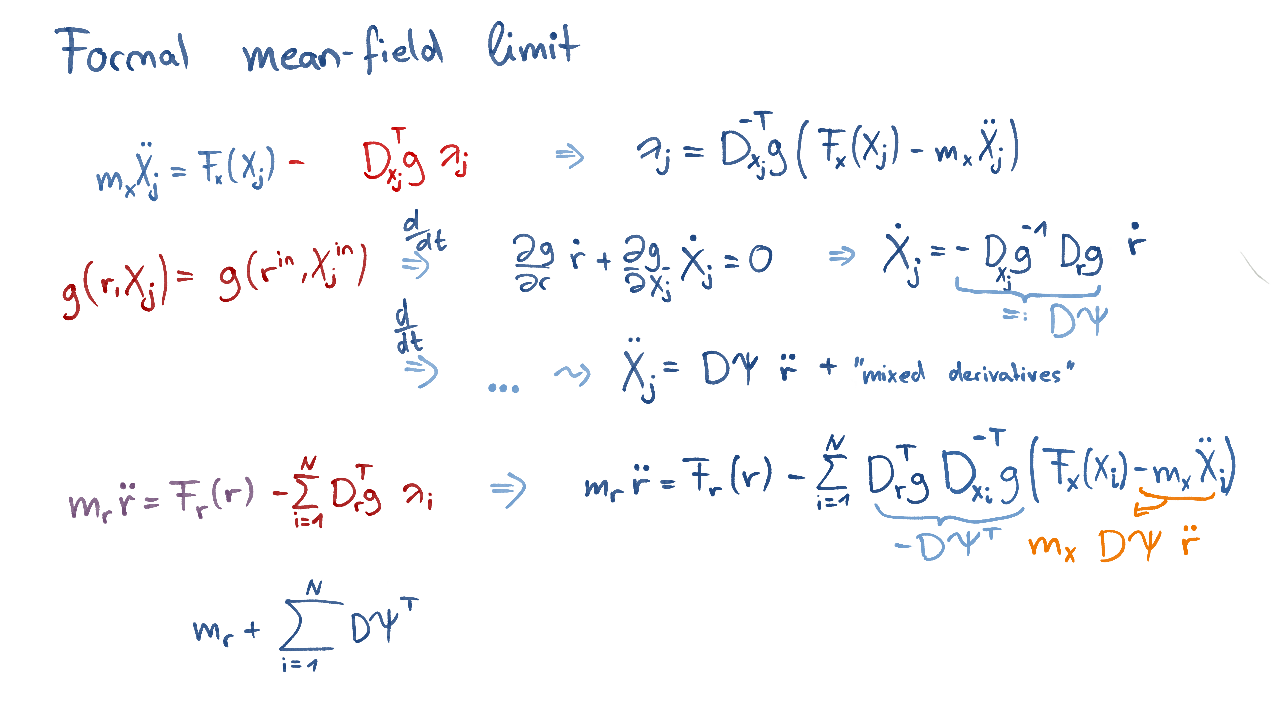 Formal mean-field limit
m_x Ẍ_j = F_x(X_j) - D_{x_j}^T g λ_j ⇒ λ_j = D_{x_j}^{-T} g (F_x(X_j) - m_x Ẍ_j)
g(r, X_j) = g(r^{in}, X_j^{in}) d/dt ⇒ ∂g/∂r ṙ + ∂g/∂X_j Ẋ_j = 0 ⇒ Ẋ_j = - D_{x_j} g^{-1} D_r g ṙ
=: DΨ
d/dt ⇒ ... ⇝ Ẍ_j = DΨ r̈ + "mixed derivatives"
m_r r̈ = F_r(r) - ∑_{i=1}^N D_r^T g λ_i ⇒ m_r r̈ = F_r(r) - ∑_{i=1}^N D_r^T g D_{x_i}^{-T} g (F_x(X_i) - m_x Ẍ_i)
-DΨ^T m_x DΨ r̈
m_r + ∑_{i=1}^N DΨ^T